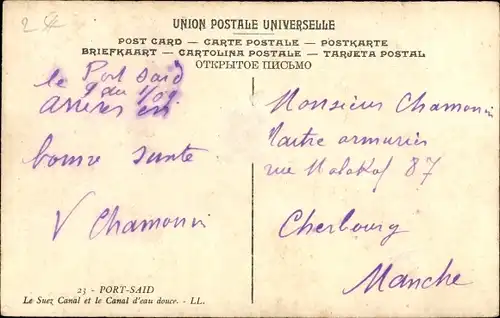 2
UNION POSTALE UNIVERSELLE
POST CARD — CARTE POSTALE — POSTKARTE
BRIEFKAART — CARTOLINA POSTALE — TARJETA POSTAL
ОТКРЫТОЕ ПИСЬМО
Port Said
le 9 du 1/09
arrives en
bonne sante
V Chamonin
Monsieur Chamonin
Maitre armurier
rue Malakof 87
Cherbourg
Manche
23 - PORT-SAID
Le Suez Canal et le Canal d'eau douce. - LL.